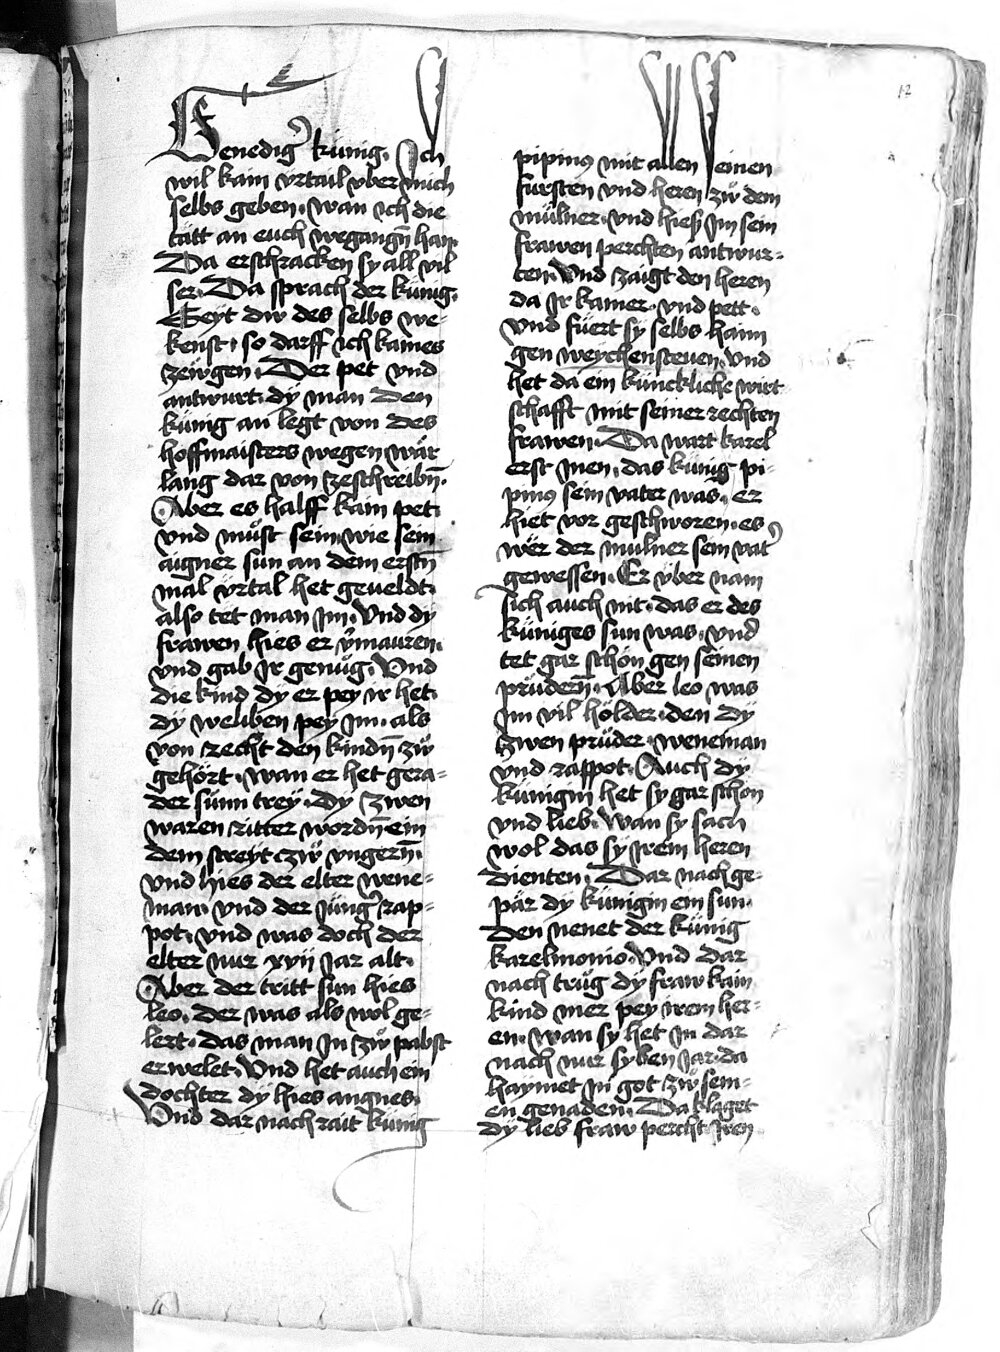 12
Genedigͬ künig. Ich
wil kain vrtail vber mich
selbs geben. wan ich die
tätt an euch wegangn̄ han.
Da erschracken sy all vil
ser. Da sprach der künig.
Seyt dw des selbs we-
kenst. so darff ich kaines
zewgen. Der pet vnd
antwurt. dy man den
künig an legt von des
hoffmaisters wegen wär
lang dar von czeschreibn̄.
Aber es halff kain pet.
vnd müst sein. wie sein
aigner sun an dem erstn̄
mal vrtal het geveldt.
also tet man im. Vnd dy
frawen hies er v̈mauren.
vnd gab ir genüg. Vnd
die kind dy er pey ir het.
dy weliben pey im. als
von recht den kindn̄ zw̎
gehört. wan er het gera-
der sünn trey. Dy zwen
waren ritter wordn̄ ein
dem streyt czw̎ vngern̄.
vnd hies der elter wene-
man. vnd der jüngͬ rap-
pot. vnd was doch der
elter nur xvij Jar alt.
Aber der tritt sun hies
leo. der was als wol ge-
lert. das man in zw̎ pabst
erwelet. Vnd het auch ein
dochter dy hies angnes.
Vnd dar nach rait künig
pipinus mit allen seinen
fürsten vnd heren zw̎ dem
mülner. vnd hieß im sein
frawen perchten antwur-
ten. Vnd zaigt den heren
da ir kamer. vnd pett.
vnd füert sy selbs haim
gen weychensteuen. Vnd
het da ein künckliche wirt
schafft mit seiner rechten
frawen. Da wart karel
erst jnen. das künig pi-
pinus sein vater was. er
hiet vor geschworen. es
wër der mulner sein vatͬ
gewessen. Er v̈ber nam
sich auch nit. das er des
küniges sun was. vnd
tet gar schön gen seinen
prüdern̄. Aber leo was
im vil hölder. den dy
zwen prüder. weneman
vnd rappot. Auch dy
künigin het sy gar schon
vnd lieb. Wan sy sach
wol das sy irem heren
dienten. Dar nach ge-
pär dy künigin ein sun.
Den nenet der künig
karelmonio. Vnd dar
nach trüg dy fraw kain
kind mer pey irem her-
en. wan sy het in dar
nach nur syben Jar. da
haymet in got zw̎ sein-
en genaden. Da klaget
dy lieb fraw percht iren